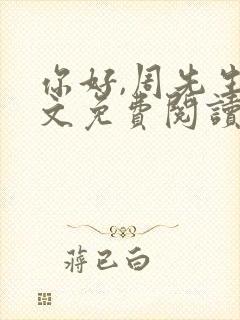 你好,周先生
文免費閱讀
蔣已白